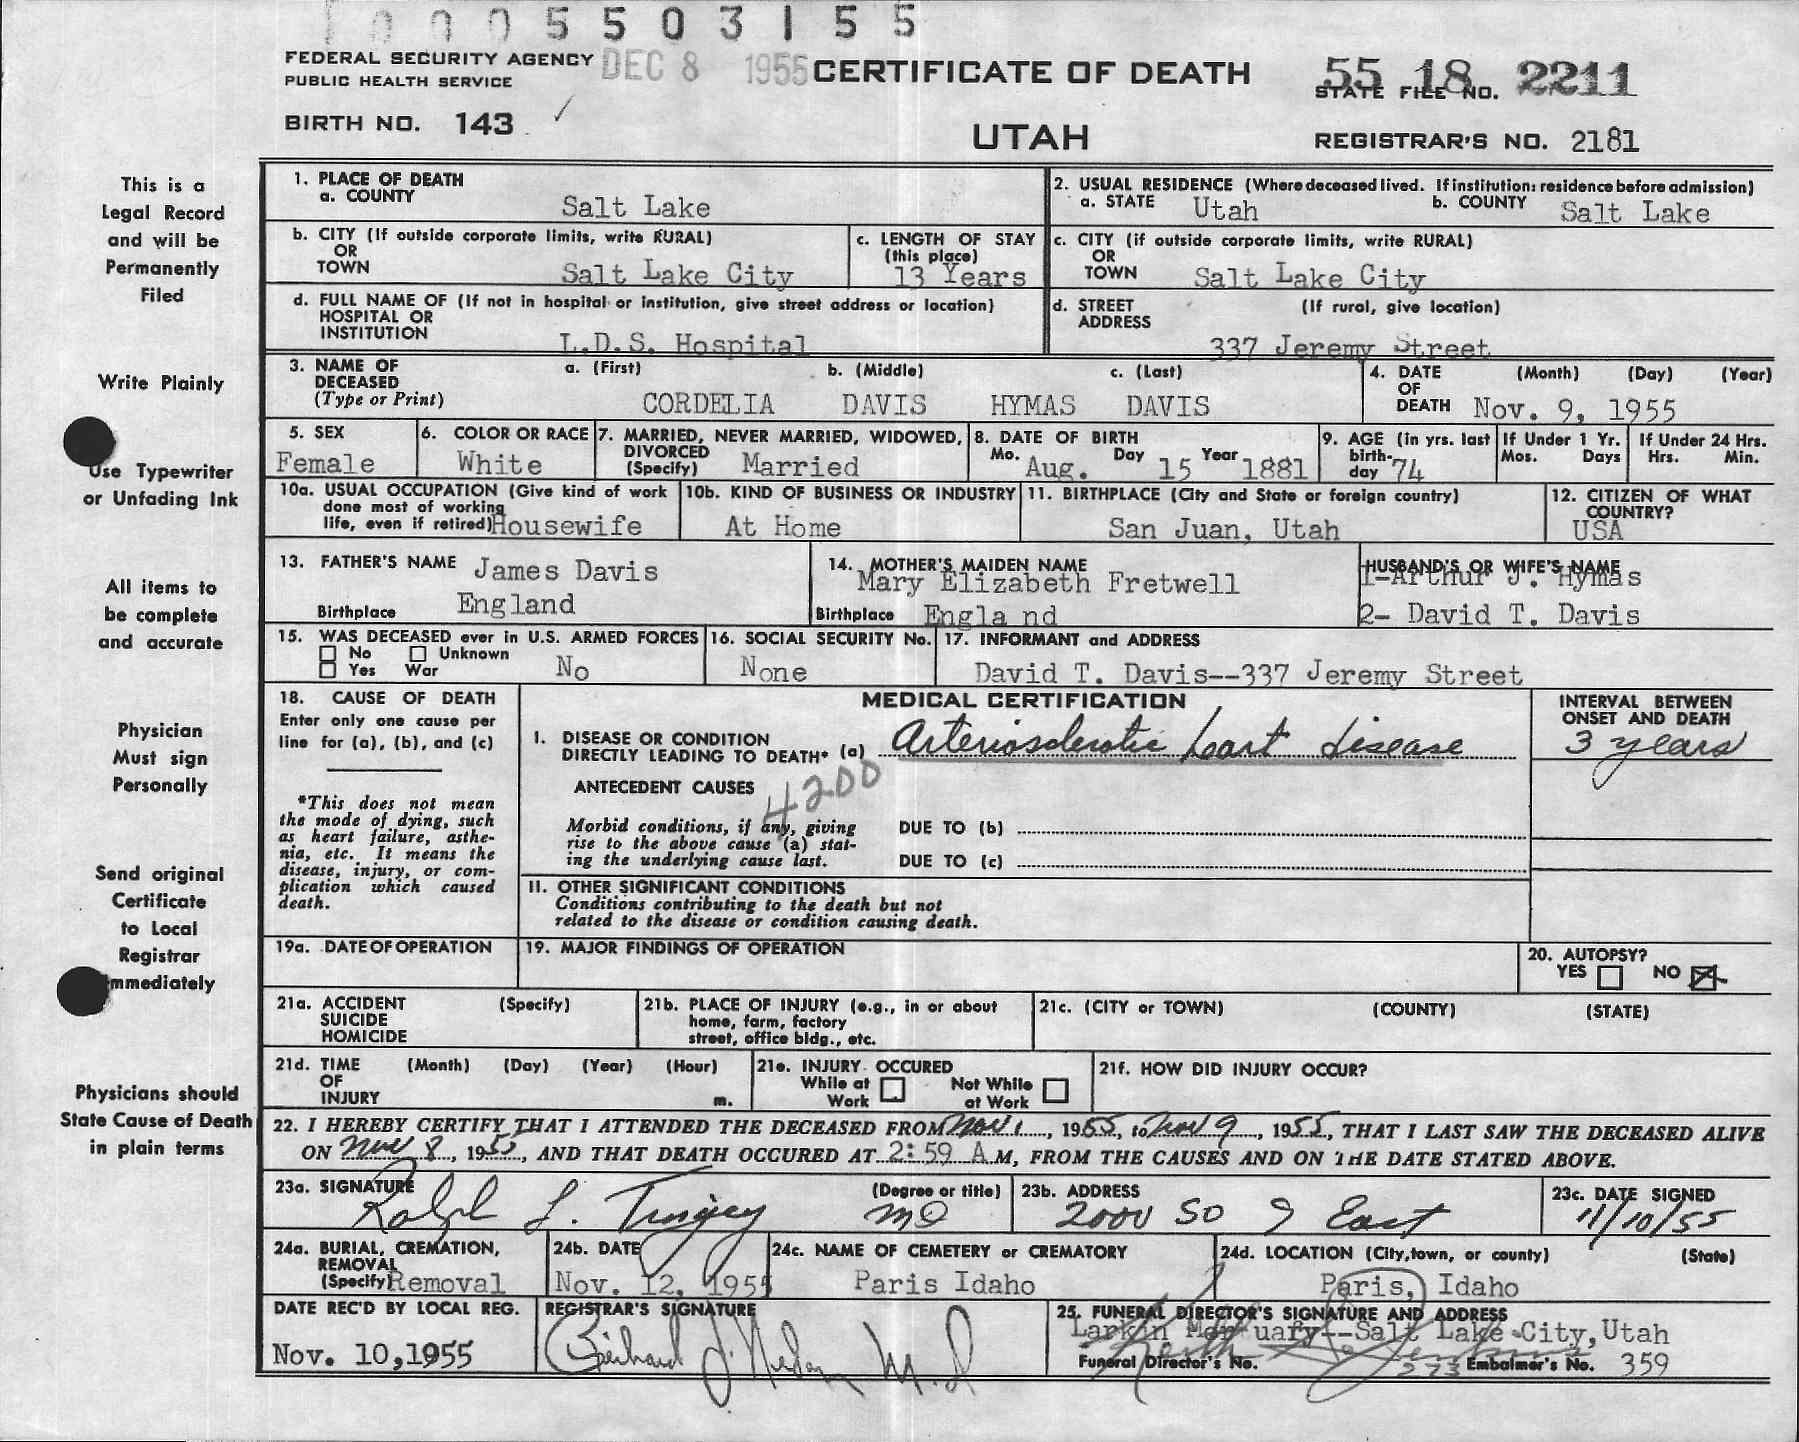 0005503155
FEDERAL SECURITY AGENCY DEC 8 1955 CERTIFICATE OF DEATH 55 18 2211
PUBLIC HEALTH SERVICE STATE FILE NO.
BIRTH NO. 143 UTAH REGISTRAR'S NO. 2181
This is a
Legal Record
and will be
Permanently
Filed
Write Plainly
Use Typewriter
or Unfading Ink
All items to
be complete
and accurate
Physician
Must sign
Personally
Send original
Certificate
to Local
Registrar
mmediately
Physicians should
State Cause of Death
in plain terms
1. PLACE OF DEATH
a. COUNTY Salt Lake
2. USUAL RESIDENCE (Where deceased lived. If institution: residence before admission)
a. STATE Utah b. COUNTY Salt Lake
b. CITY (If outside corporate limits, write RURAL)
OR
TOWN Salt Lake City
c. LENGTH OF STAY
(this place)
13 Years
c. CITY (if outside corporate limits, write RURAL)
OR
TOWN Salt Lake City
d. FULL NAME OF (If not in hospital or institution, give street address or location)
HOSPITAL OR
INSTITUTION L.D.S. Hospital
d. STREET (If rural, give location)
ADDRESS
337 Jeremy Street
3. NAME OF a. (First) b. (Middle) c. (Last)
DECEASED
(Type or Print) CORDELIA DAVIS HYMAS DAVIS
4. DATE (Month) (Day) (Year)
OF
DEATH Nov. 9, 1955
5. SEX
Female
6. COLOR OR RACE
White
7. MARRIED, NEVER MARRIED, WIDOWED,
DIVORCED
(Specify) Married
8. DATE OF BIRTH
Mo. Aug. Day 15 Year 1881
9. AGE (in yrs. last
birth-
day 74
If Under 1 Yr.
Mos. Days
If Under 24 Hrs.
Hrs. Min.
10a. USUAL OCCUPATION (Give kind of work
done most of working
life, even if retired) Housewife
10b. KIND OF BUSINESS OR INDUSTRY
At Home
11. BIRTHPLACE (City and State or foreign country)
San Juan, Utah
12. CITIZEN OF WHAT
COUNTRY?
USA
13. FATHER'S NAME James Davis
Birthplace England
14. MOTHER'S MAIDEN NAME
Mary Elizabeth Fretwell
Birthplace Engla nd
HUSBAND'S OR WIFE'S NAME
1-Arthur J. Hymas
2- David T. Davis
15. WAS DECEASED ever in U.S. ARMED FORCES
No Unknown
Yes War No
16. SOCIAL SECURITY No.
None
17. INFORMANT and ADDRESS
David T. Davis--337 Jeremy Street
18. CAUSE OF DEATH
Enter only one cause per
line for (a), (b), and (c)
*This does not mean
the mode of dying, such
as heart failure, asthe-
nia, etc. It means the
disease, injury, or com-
plication which caused
death.
MEDICAL CERTIFICATION
I. DISEASE OR CONDITION
DIRECTLY LEADING TO DEATH* (a) Arteriosclerotic heart disease
4200
ANTECEDENT CAUSES
Morbid conditions, if any, giving
rise to the above cause (a) stat-
ing the underlying cause last.
DUE TO (b)
DUE TO (c)
II. OTHER SIGNIFICANT CONDITIONS
Conditions contributing to the death but not
related to the disease or condition causing death.
INTERVAL BETWEEN
ONSET AND DEATH
3 years
19a. DATE OF OPERATION
19. MAJOR FINDINGS OF OPERATION
20. AUTOPSY?
YES NO
21a. ACCIDENT (Specify)
SUICIDE
HOMICIDE
21b. PLACE OF INJURY (e.g., in or about
home, farm, factory
street, office bldg., etc.
21c. (CITY or TOWN) (COUNTY) (STATE)
21d. TIME (Month) (Day) (Year) (Hour)
OF
INJURY m.
21e. INJURY OCCURED
While at Not While
Work at Work
21f. HOW DID INJURY OCCUR?
22. I HEREBY CERTIFY THAT I ATTENDED THE DECEASED FROM Nov 1, 1955, to Nov 9, 1955, THAT I LAST SAW THE DECEASED ALIVE
ON Nov 8, 1955, AND THAT DEATH OCCURED AT 2:59 A M, FROM THE CAUSES AND ON THE DATE STATED ABOVE.
23a. SIGNATURE (Degree or title)
Ralph L. Tingey MD
23b. ADDRESS
2000 SO 9 East
23c. DATE SIGNED
11/10/55
24a. BURIAL, CREMATION,
REMOVAL
(Specify) Removal
24b. DATE
Nov. 12, 1955
24c. NAME OF CEMETERY or CREMATORY
Paris Idaho
24d. LOCATION (City, town, or county) (State)
Paris, Idaho
DATE REC'D BY LOCAL REG.
Nov. 10,1955
REGISTRAR'S SIGNATURE
M.D
25. FUNERAL DIRECTOR'S SIGNATURE AND ADDRESS
Larkin Mortuary--Salt Lake City, Utah
Funeral Director's No. 273 Embalmer's No. 359